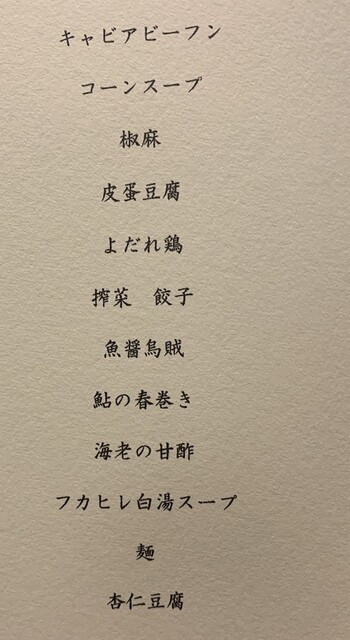 キャビアビーフン
コーンスープ
椒麻
皮蛋豆腐
よだれ鶏
搾菜　餃子
魚醤烏賊
鮎の春巻き
海老の甘酢
フカヒレ白湯スープ
麺
杏仁豆腐